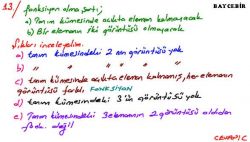 13 fonksiyon olma şartı;
BAYCEBİR
a) Tanım kümesinde açıkta eleman kalmayacak
b) Bir elemanın iki görüntüsü olmayacak
Şıkları inceleyelim.
a) tanım kümesindeki 2 nin görüntüsü yok
b) " " " " "
c) tanım kümesinde açıkta eleman kalmamış, her elemanın
görüntüsü farklı. FONKSİYON
d) tanım kümesindeki 3'ün görüntüsü yok
e) Tanım kümesindeki 3 elemanın 2 görüntüsü olduğundan
fonk. değil
CEVAP: C